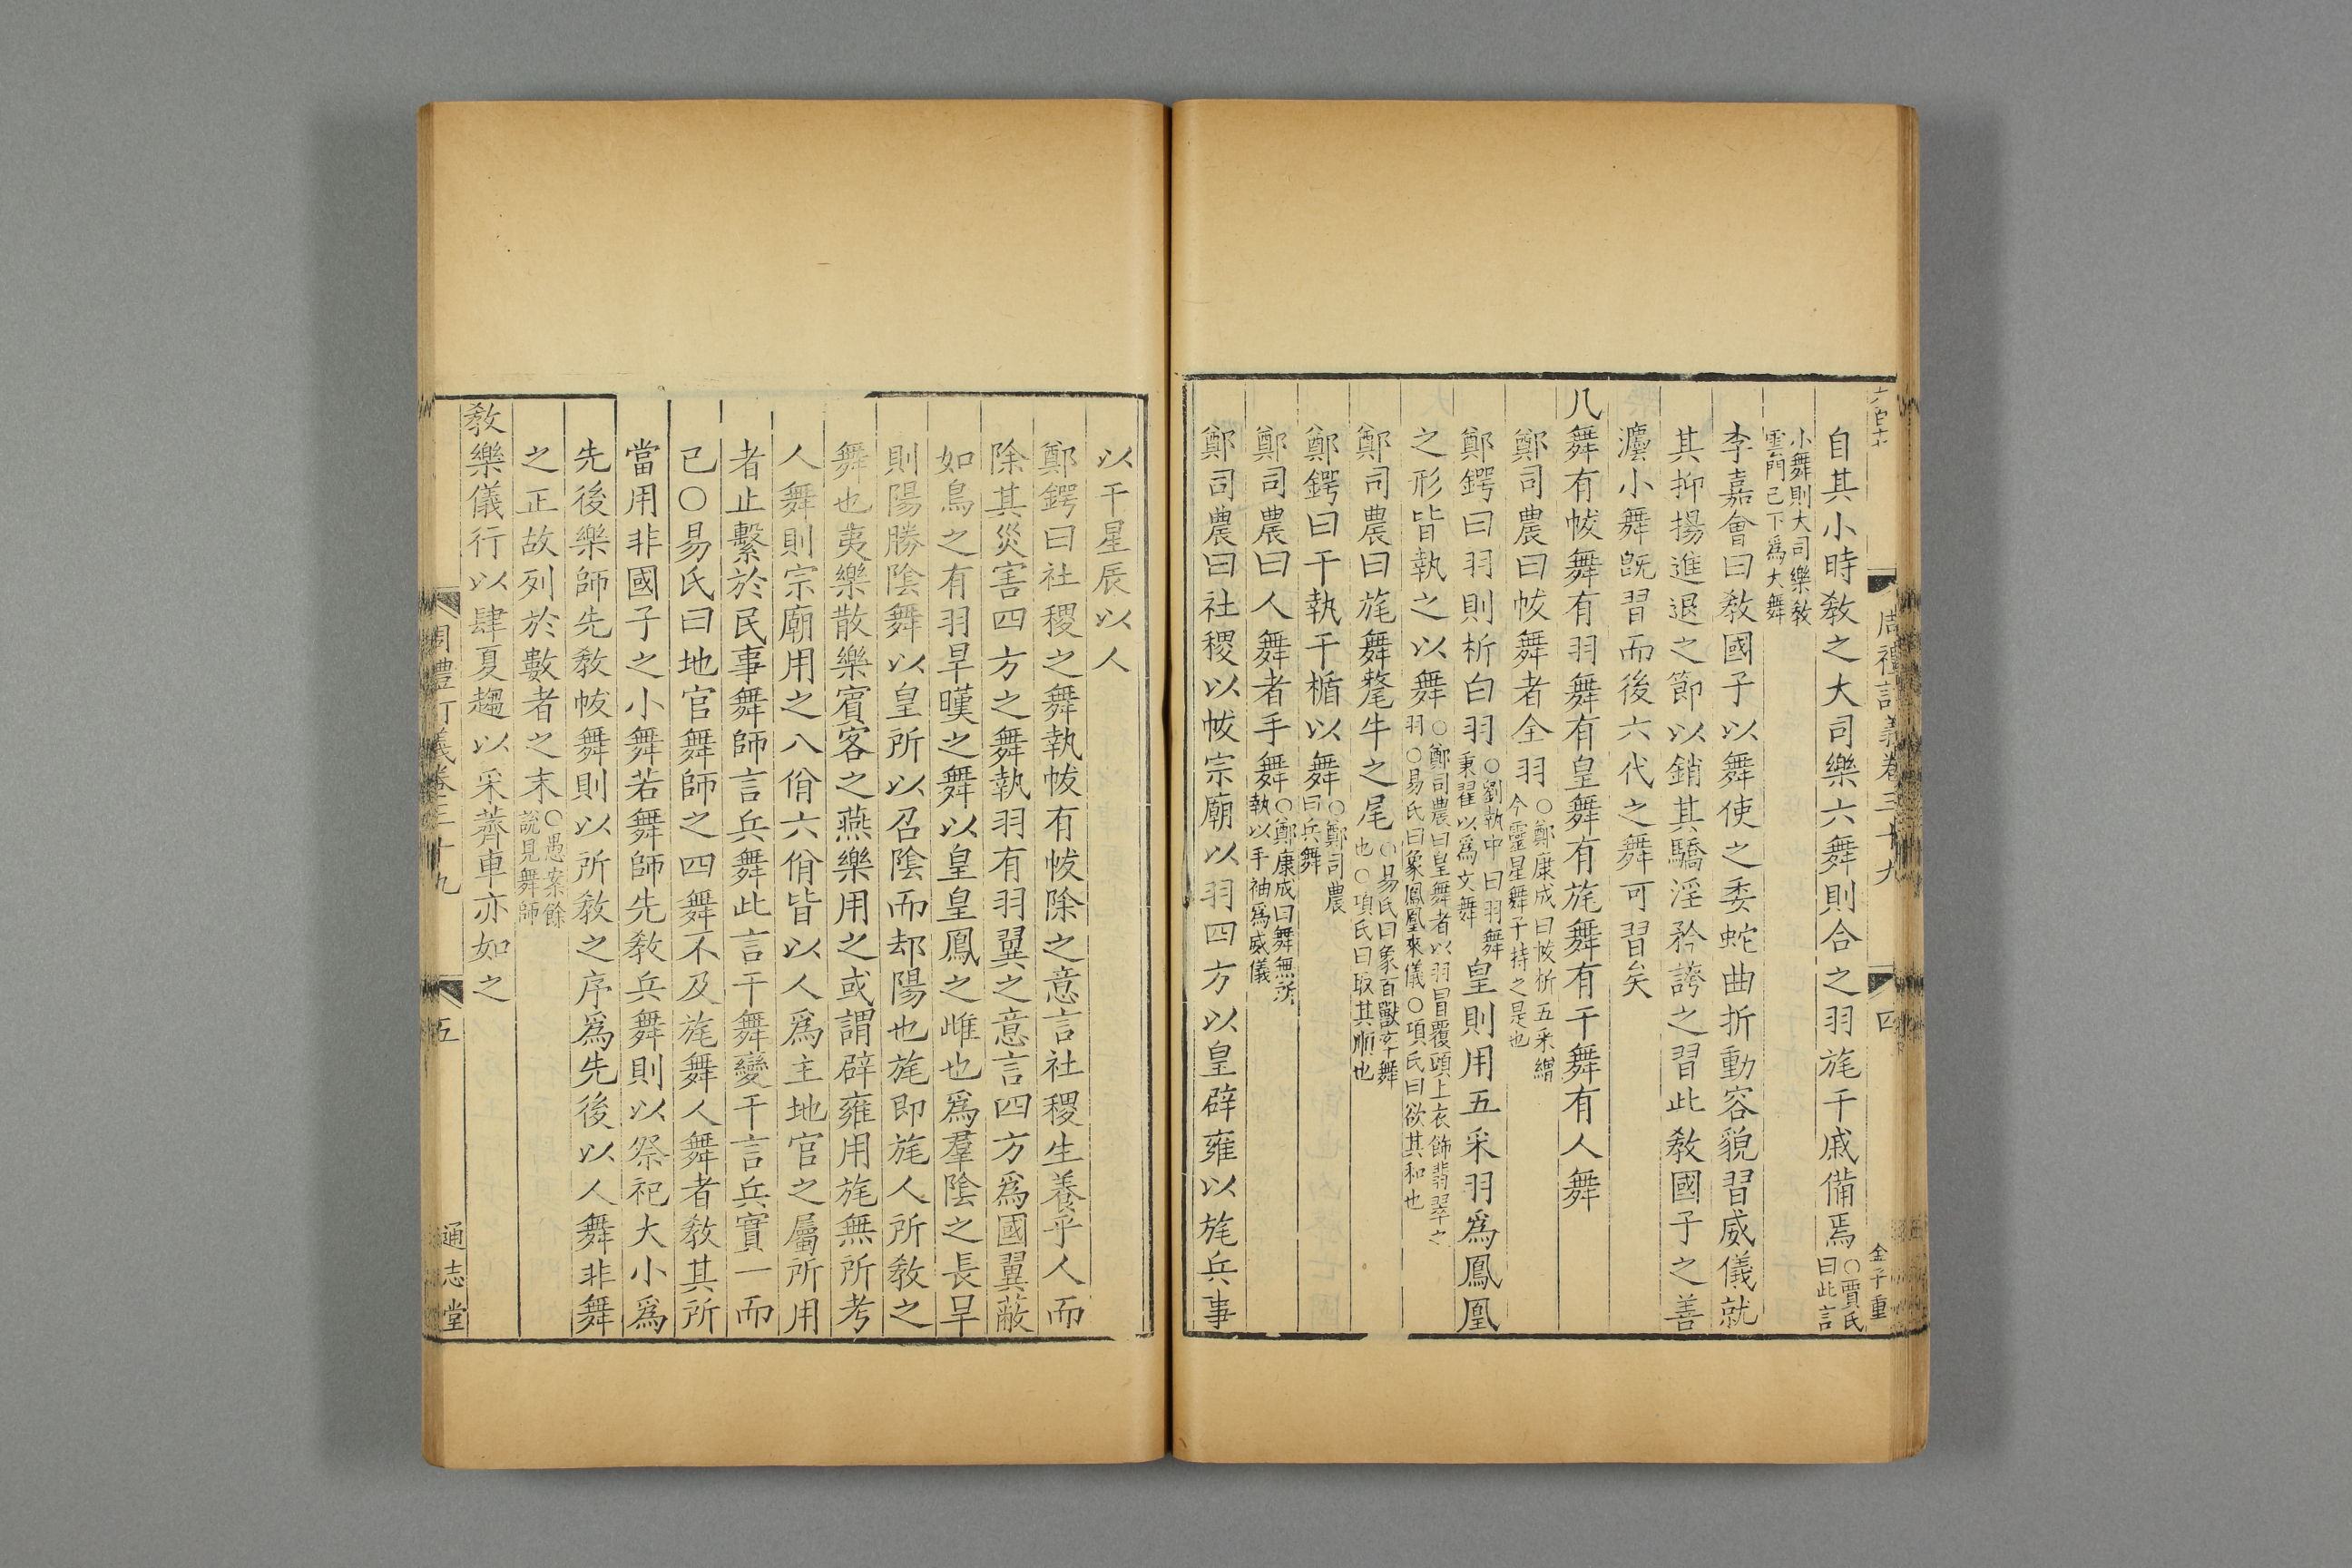 周禮訂義卷三十九
四
金子重
自其小時敎之大司樂六舞則合之羽旄干戚備焉○賈氏曰此言
小舞則大司樂敎雲門已下爲大舞
李嘉會曰敎國子以舞使之委蛇曲折動容貌習威儀就
其抑揚進退之節以銷其驕淫矜誇之習此敎國子之善
灋小舞旣習而後六代之舞可習矣
凡舞有帗舞有羽舞有皇舞有旄舞有干舞有人舞
鄭司農曰帗舞者全羽○鄭康成曰帗析五采繒今靈星舞子持之是也
鄭鍔曰羽則析白羽○劉執中曰羽舞秉翟以爲文舞皇則用五采羽爲鳳凰
之形皆執之以舞○鄭司農曰皇舞者以羽冒覆頭上衣飾翡翠之羽○易氏曰象鳳凰來儀○項氏曰欲其和也
鄭司農曰旄舞氂牛之尾○易氏曰象百獸率舞也○項氏曰取其順也
鄭鍔曰干執干楯以舞○鄭司農曰兵舞
鄭司農曰人舞者手舞○鄭康成曰舞無所執以手袖爲威儀
鄭司農曰社稷以帗宗廟以羽四方以皇辟雍以旄兵事
以干星辰以人
鄭鍔曰社稷之舞執帗有帗除之意言社稷生養乎人而
除其災害四方之舞執羽有羽翼之意言四方爲國翼蔽
如鳥之有羽旱暵之舞以皇皇鳳之雌也爲羣陰之長旱
則陽勝陰舞以皇所以召陰而却陽也旄即旄人所敎之
舞也夷樂散樂賓客之燕樂用之或謂辟雍用旄無所考
人舞則宗廟用之八佾六佾皆以人爲主地官之屬所用
者止繫於民事舞師言兵舞此言干舞變干言兵實一而
已○易氏曰地官舞師之四舞不及旄舞人舞者敎其所
當用非國子之小舞若舞師先敎兵舞則以祭祀大小爲
先後樂師先敎帗舞則以所敎之序爲先後以人舞非舞
之正故列於數者之末○愚案餘說見舞師
敎樂儀行以肆夏趨以采薺車亦如之
周禮訂義卷三十九
五
通志堂